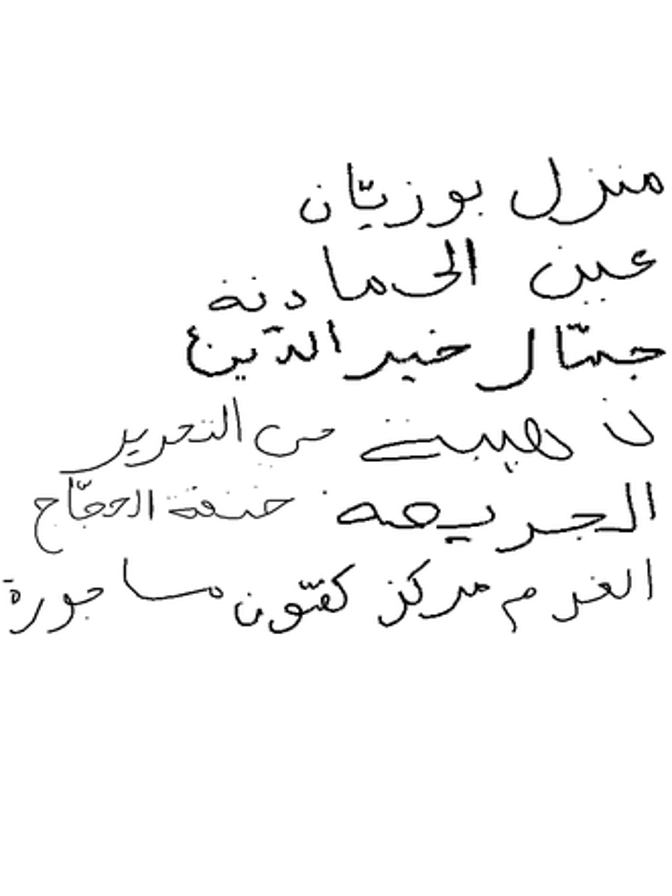 منزل بوزيّان
عين الحمادنة
جمّال خير الدّين
حي التحرير
الجريصة خنقة الحجّاج
الغرم مركز كمّون ساجورة